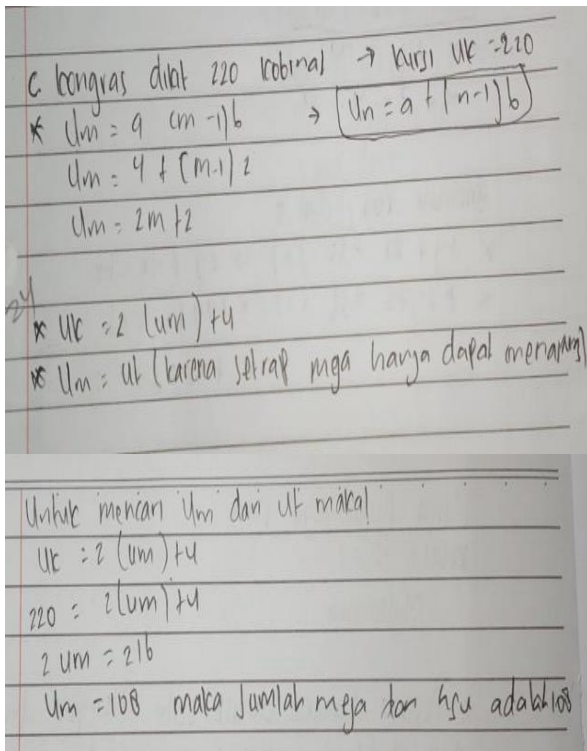 C. kongras dikat 220 kobinal → kursi Uk = 220
* Um = a (m-1)b → Un = a + (n-1)b
Um = 4 + (m-1)2
Um = 2m+2
24
* Uk = 2 (um) + 4
* Um = Ut (karena setiap mega hanya dapat
Untuk mencari Um dan Ut maka
Uk = 2 (um) + 4
220 = 2(um) + 4
2 um = 216
Um = 108 maka Jumlah meja dan adalah 108